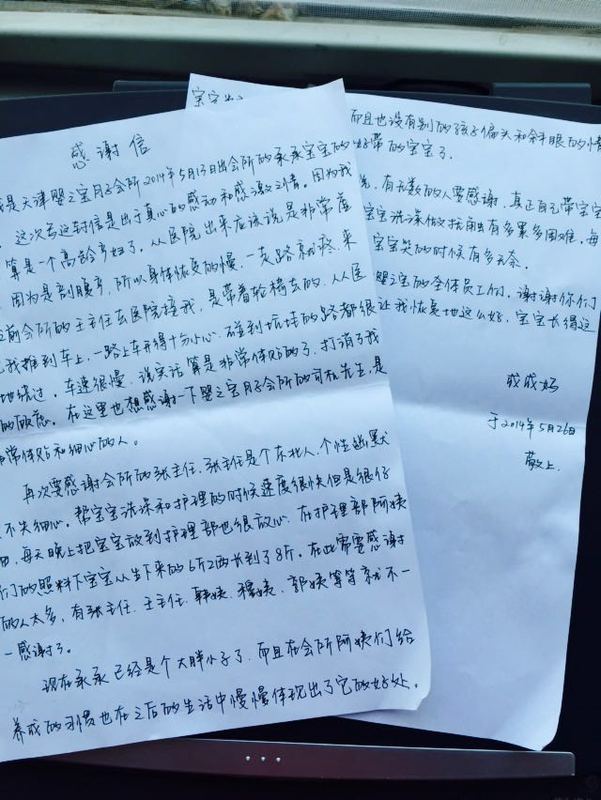 感谢信
是天津婴之宝月子会所2014年5月13日出会所的承承宝宝的
这次去这封信是出于真心的感动和感激之情。因为我
算是一个高龄产妇了，从医院出来应该说是非常虚
因为是剖腹产，所以身体恢复的慢，一走路就疼，来
前会所的王主任去医院接我，是带着轮椅去的，从医
把我推到车上，一路上车开得十分小心，碰到坑洼的路都很
地绕过，车速很慢，说实话算是非常体贴的了，打消了我
的顾虑。在这里也想感谢一下婴之宝月子会所的司机先生，是
常体贴和细心的人。
再次要感谢会所的张主任，张主任是个东北人，个性幽默
不失细心，帮宝宝洗澡和护理的时候速度很快但是很仔
，每天晚上把宝宝放到护理部也很放心。在护理部阿姨
们的照料下宝宝从生下来的6斤2两长到了8斤。在此需要感谢
的人太多，有张主任、王主任、韩姨、穆姨、郭姨等等就不一
一感谢了。
现在承承已经是个大胖小子了，而且在会所阿姨们给
养成的习惯也在之后的生活中慢慢体现出了它的好处，
宝宝
而且也没有别的孩子偏头和斜眼的情
好带的宝宝了。
有无数的人要感谢，真正自己带宝宝
宝宝洗澡做抚触有多累多困难，每
宝宝哭的时候有多无奈。
婴之宝的全体员工们，谢谢你们
让我恢复地这么好，宝宝长得这
成成妈
于2014年5月26日
敬上